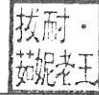 拔耐·
茹妮老王